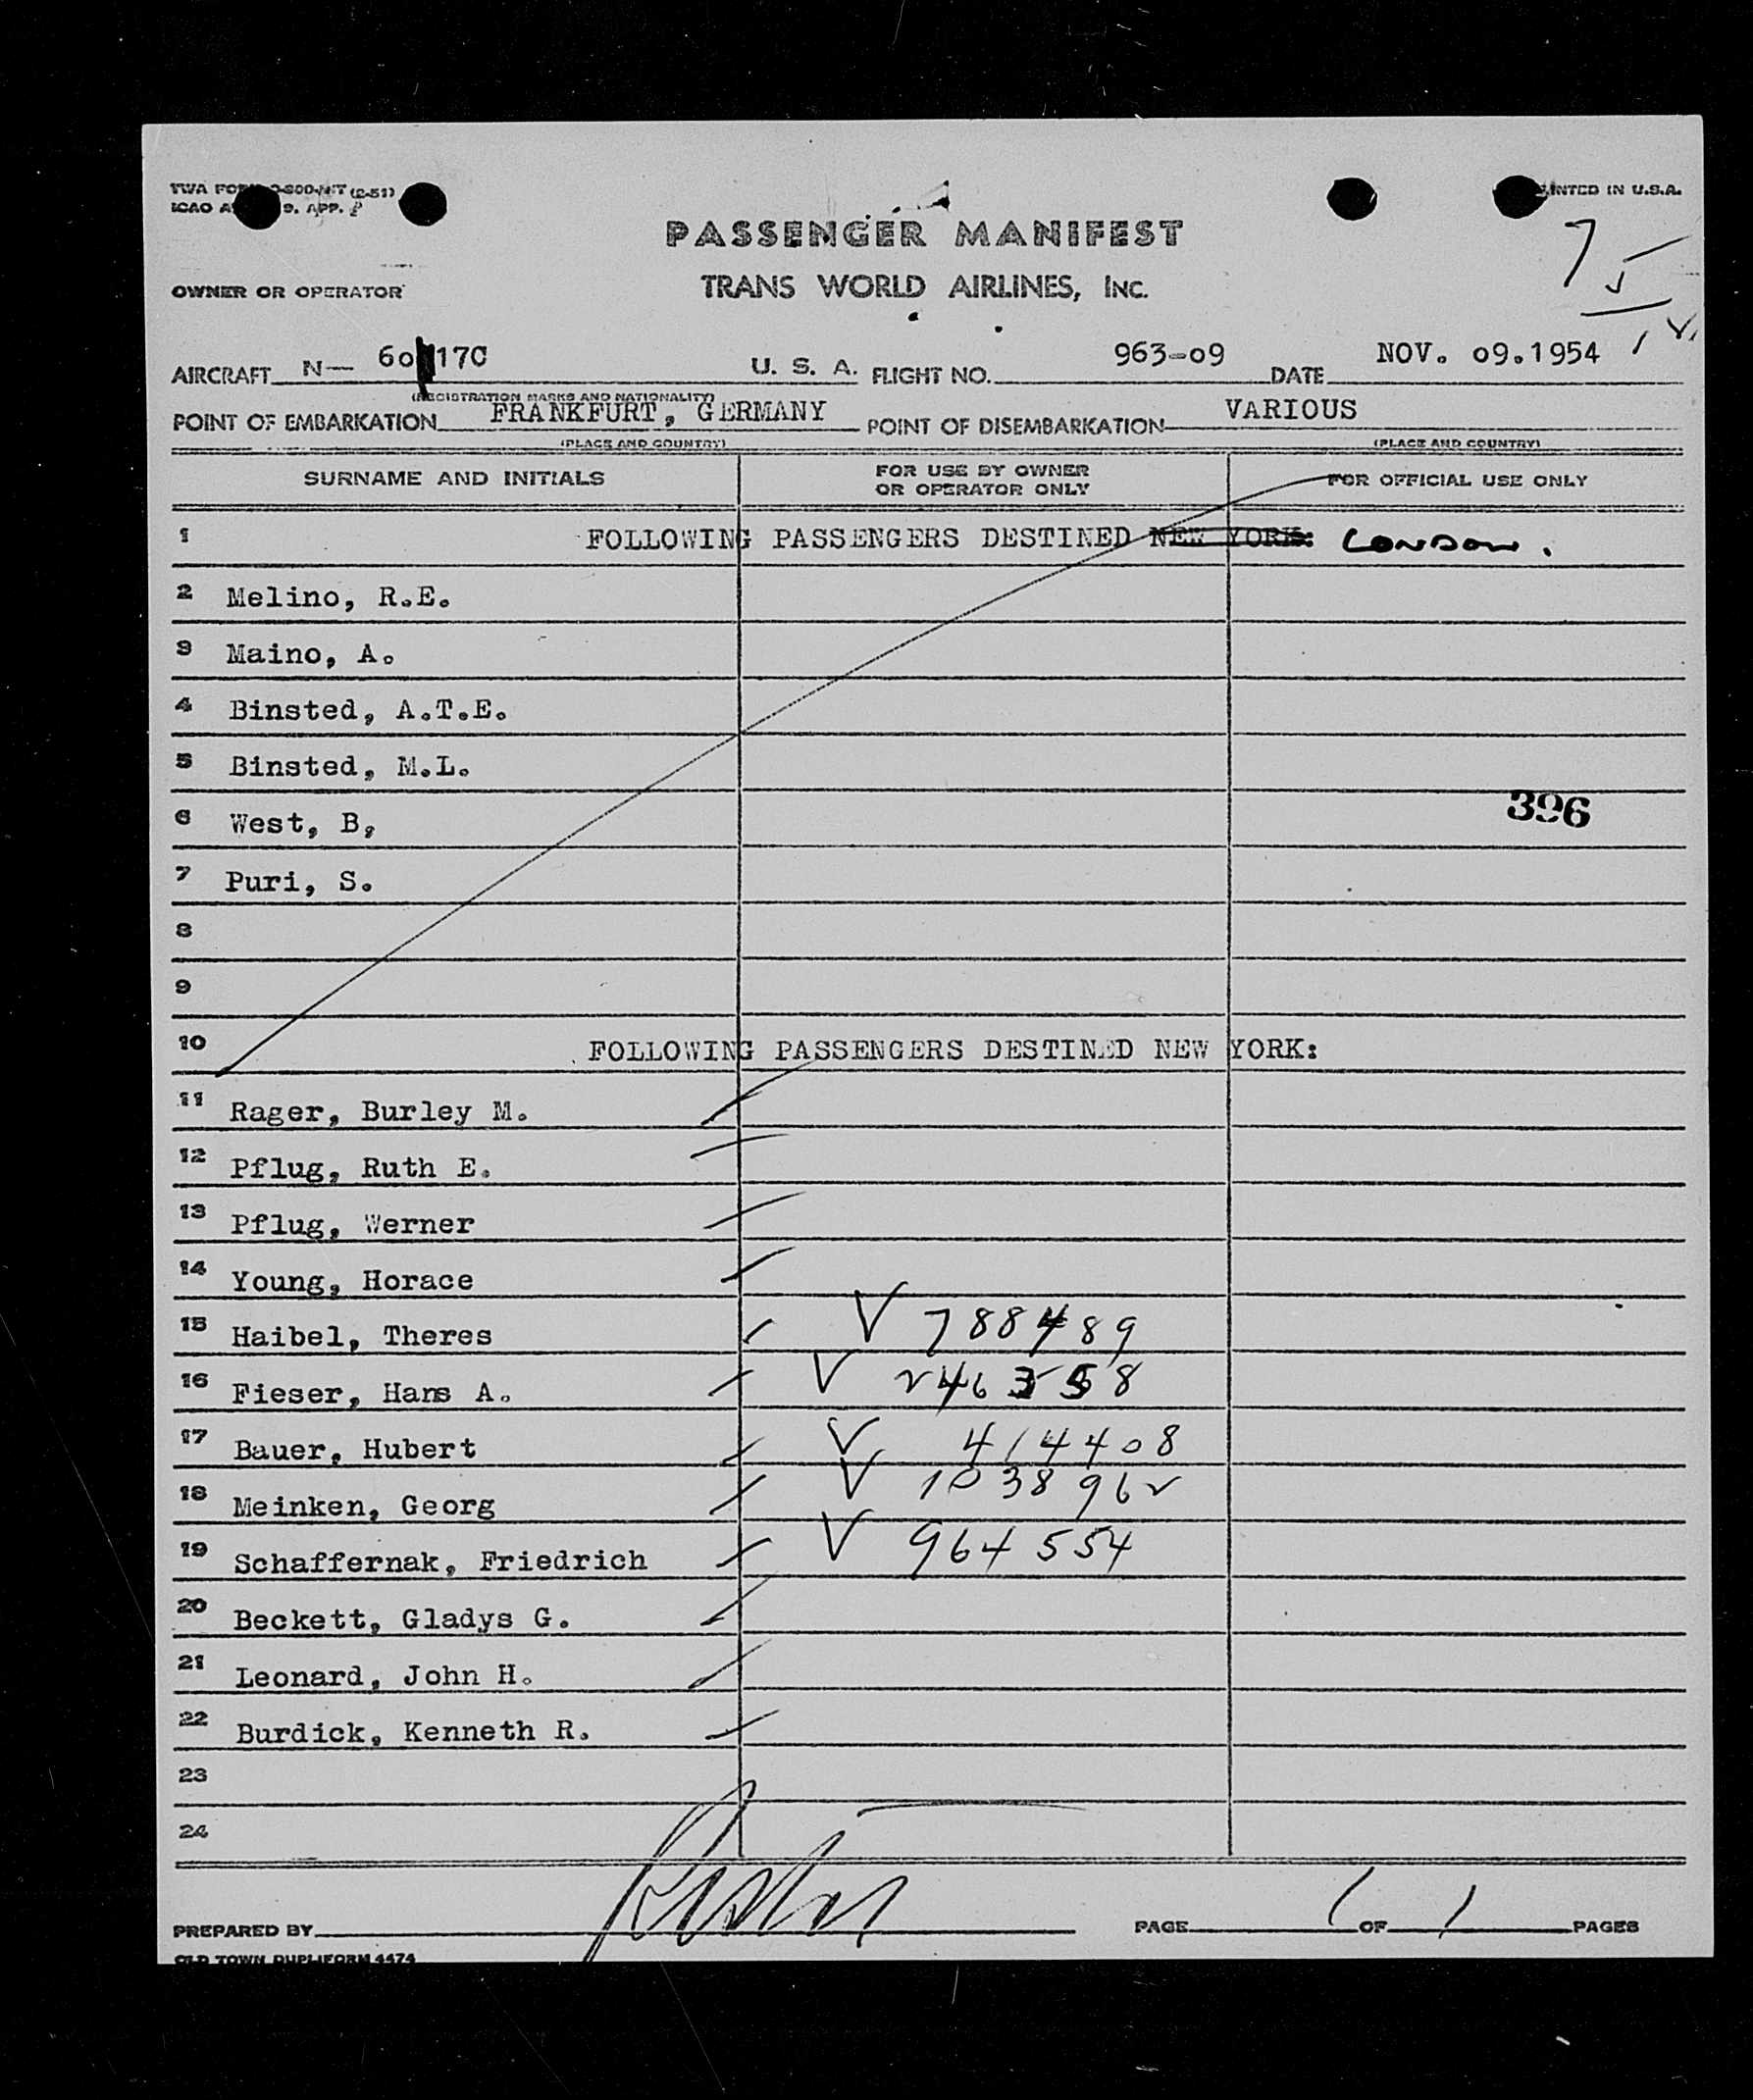 PASSENGER MANIFEST
TRANS WORLD AIRLINES, INC.
PRINTED IN U.S.A.
7 5
OWNER OR OPERATOR
AIRCRAFT N— 60 17C U. S. A. FLIGHT NO. 963-09 DATE NOV. 09.1954
(REGISTRATION MARKS AND NATIONALITY)
POINT OF EMBARKATION FRANKFURT, GERMANY POINT OF DISEMBARKATION VARIOUS
(PLACE AND COUNTRY) (PLACE AND COUNTRY)
SURNAME AND INITIALS FOR USE BY OWNER OR OPERATOR ONLY FOR OFFICIAL USE ONLY
1 FOLLOWING PASSENGERS DESTINED NEW YORK: LONDON.
2 Melino, R.E.
3 Maino, A.
4 Binsted, A.T.E.
5 Binsted, M.L.
6 West, B,
396
7 Puri, S.
8
9
10 FOLLOWING PASSENGERS DESTINED NEW YORK:
11 Rager, Burley M.
12 Pflug, Ruth E.
13 Pflug, Werner
14 Young, Horace
15 Haibel, Theres V 788489
16 Fieser, Hans A. V
17 Bauer, Hubert V 414408
18 Meinken, Georg V 1038962
19 Schaffernak, Friedrich V 964554
20 Beckett, Gladys G.
21 Leonard, John H.
22 Burdick, Kenneth R.
23
24
PREPARED BY PAGE 1 OF 1 PAGES
OLD TOWN DUPLIFORM 4474